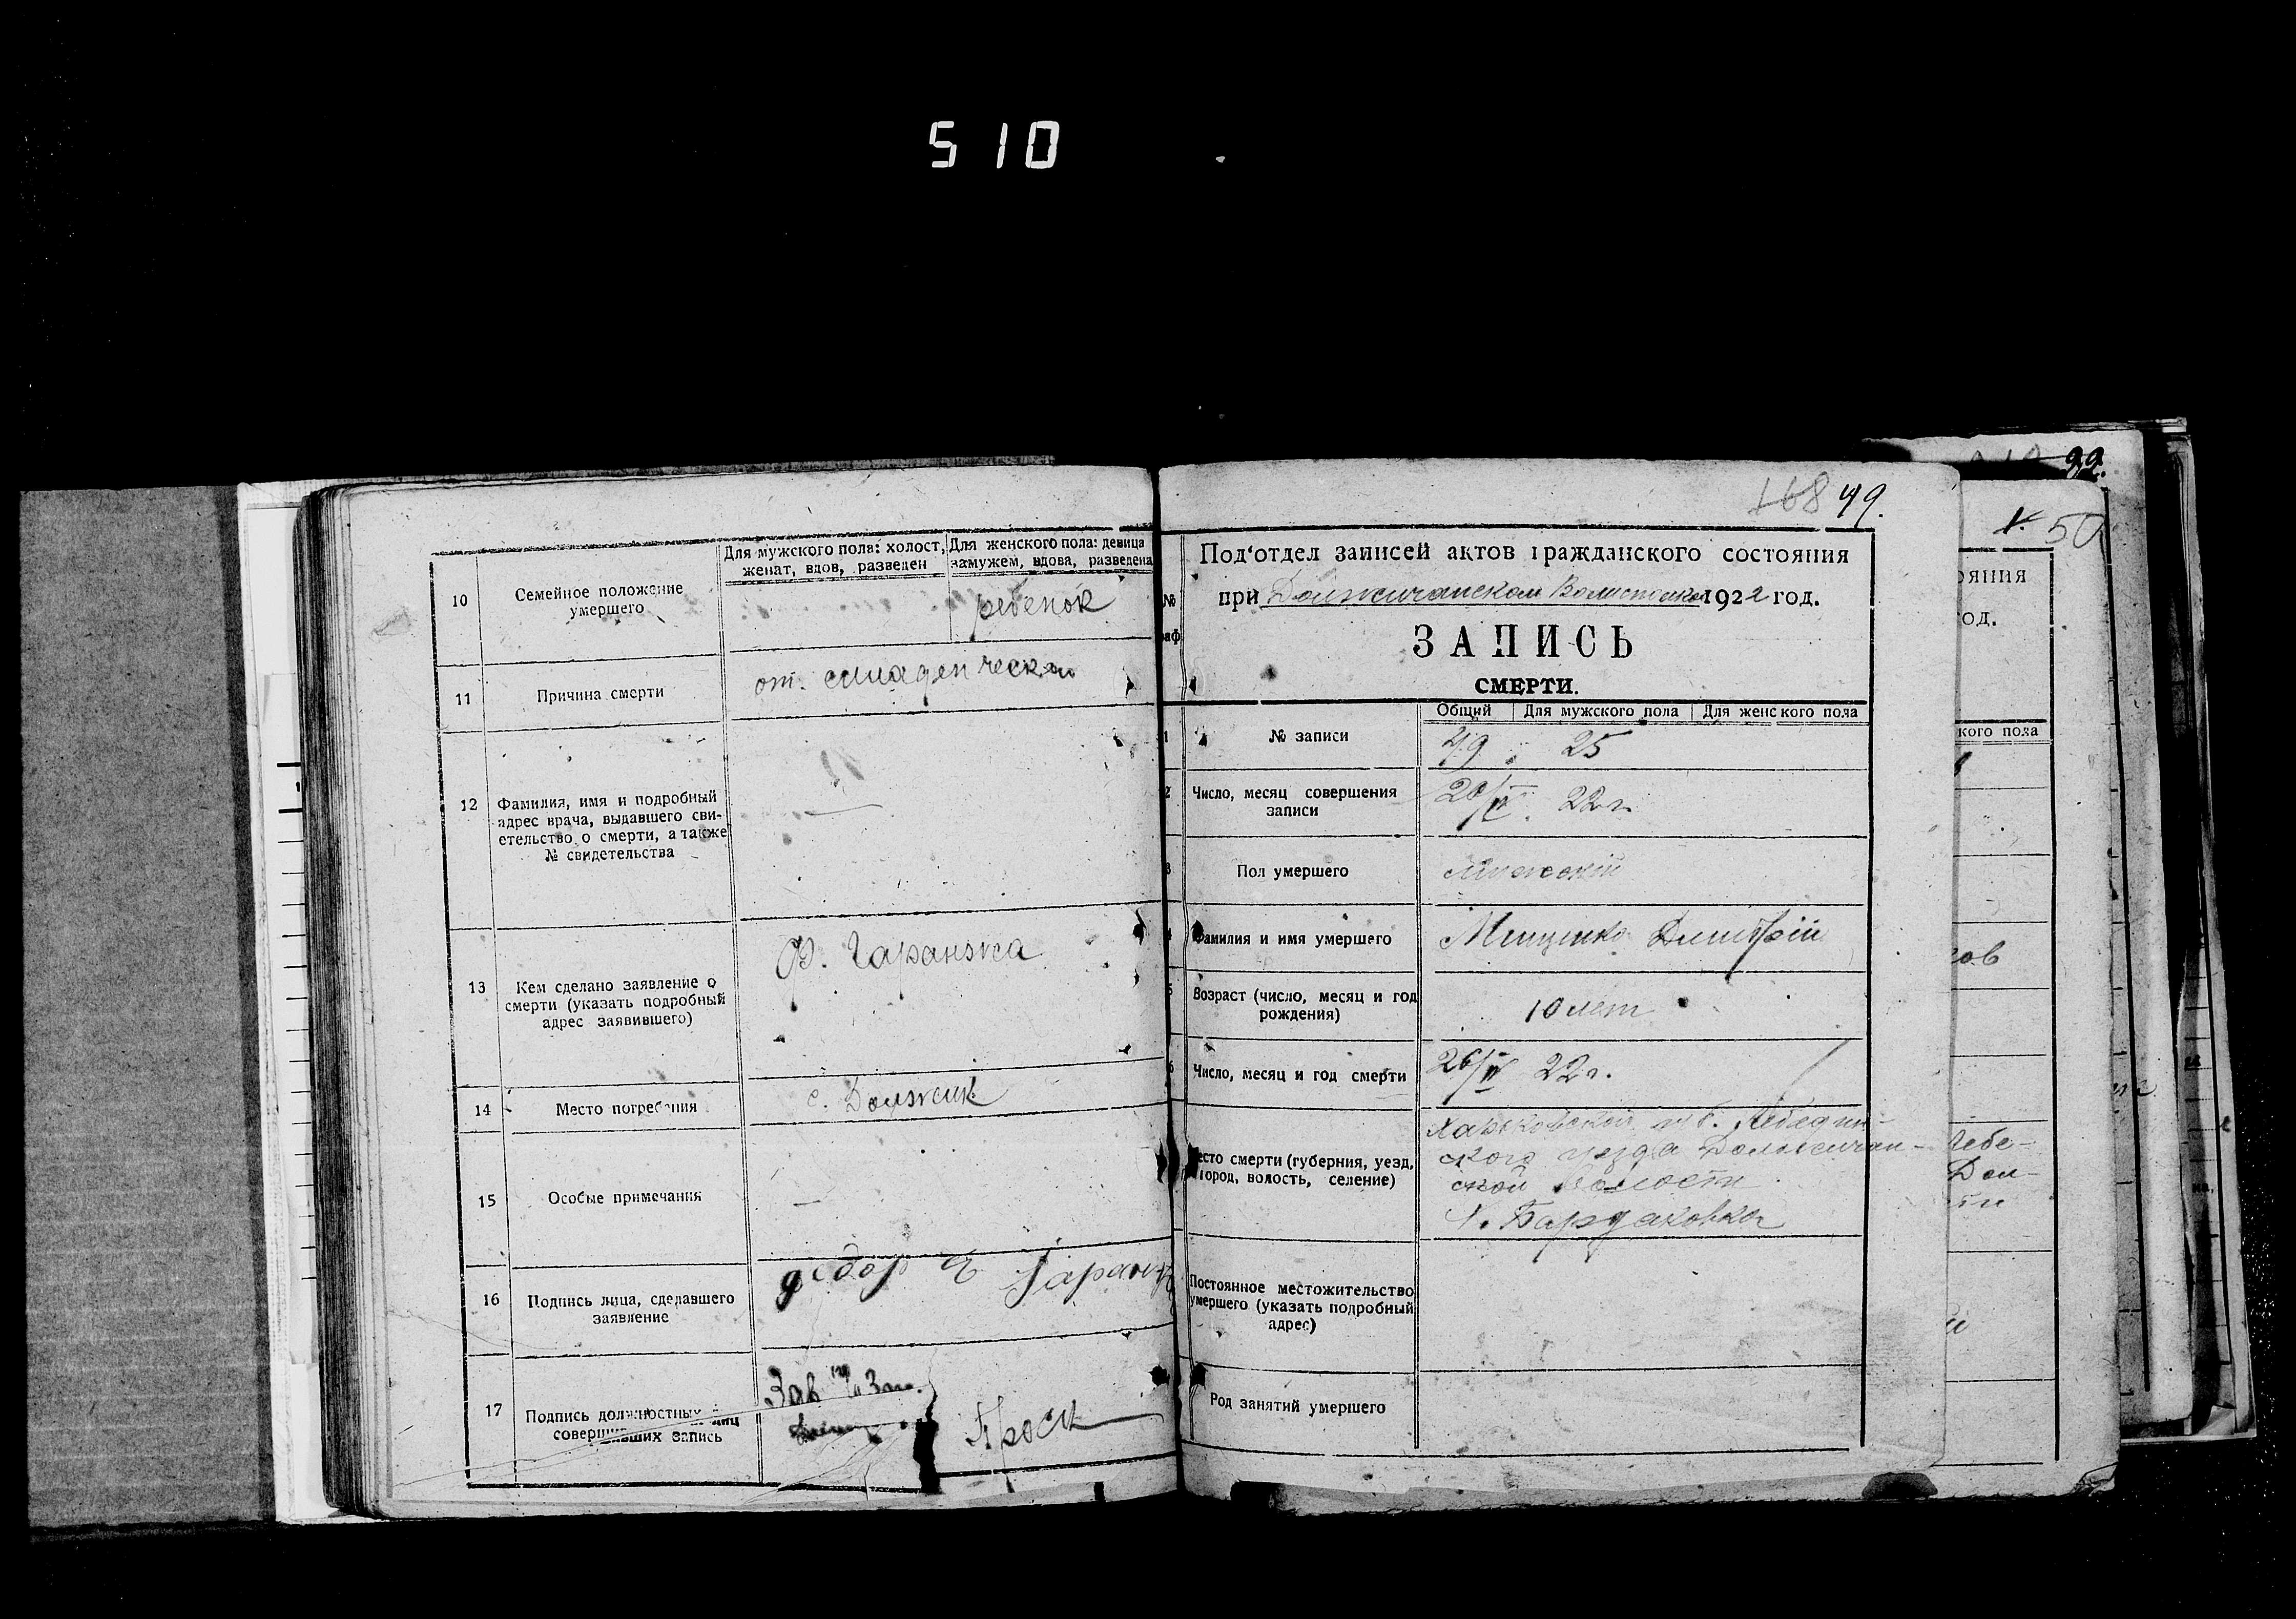 510
10
Семейное положение
умершего
Для мужского пола: холост,
женат, вдов, разведен
Для женского пола: девица
замужем, вдова, разведена
ребенок
11
Причина смерти
от.
12
Фамилия, имя и подробный
адрес врача, выдавшего сви-
етельство о смерти, а также
№ свидетельства
13
Кем сделано заявление о
смерти (указать подробный
адрес заявившего)
14
Место погребения
с. Должик
15
Особые примечания
16
Подпись лица, сделавшего
заявление
17
Подпись должностных лиц
совершивших запись
Зав
168 49.
Под'отдел записей актов гражданского состояния
при Должичанском 1922 год.
ЗАПИСЬ
СМЕРТИ.
№
Общий
Для мужского пола
Для женского пола
1
№ записи
49 25
2
Число, месяц совершения
записи
22 г.
3
Пол умершего
мужский
Фамилия и имя умершего
Димитрий
5
Возраст (число, месяц и год
рождения)
10 лет
6
Число, месяц и год смерти
26/IV 22 г.
Место смерти (губерния, уезд,
город, волость, селение)
Харьковской губ. Лебедин-
ского уезда Должичан-
ской волости
х. Бардаковка
Постоянное местожительство
умершего (указать подробный
адрес)
Род занятий умершего
99.
50
ояния
од.
кого пола
ков
Лебе-
Дол-